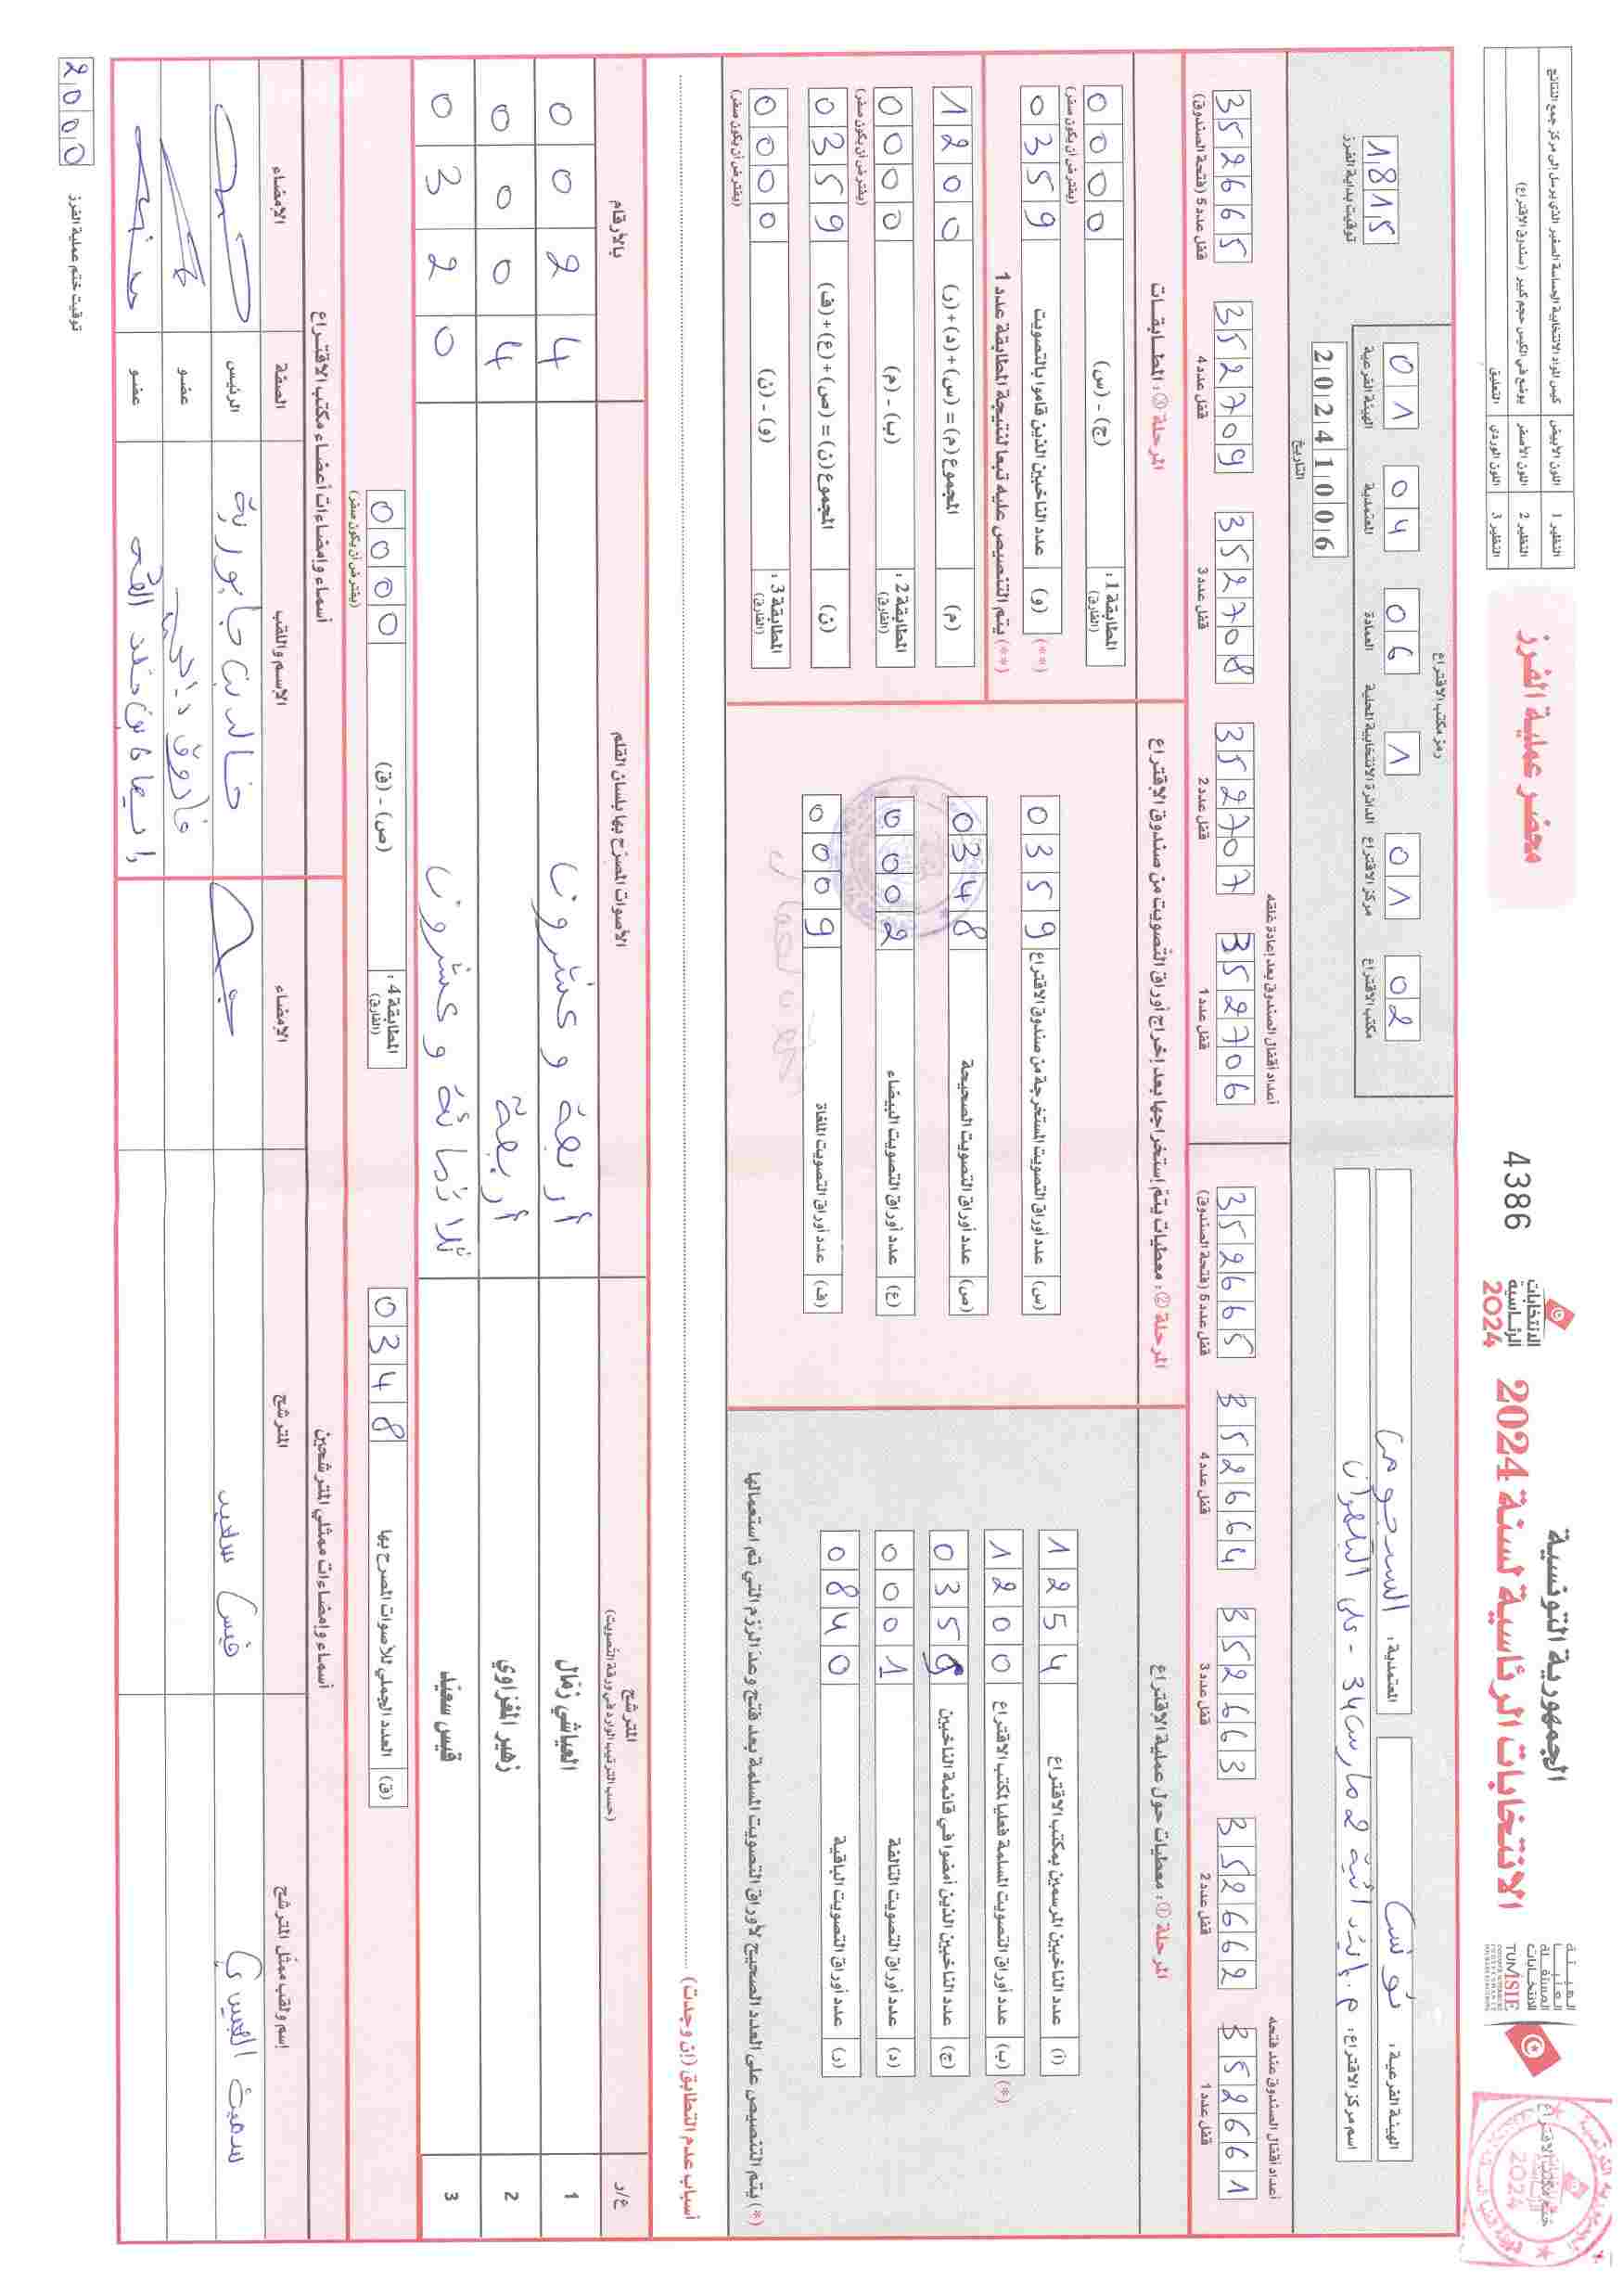 الجمهورية التونسية
الانتخابات الرئاسية لسنة 2024
الهيئة
العليا
المستقلة
للانتخابات
TUNISIE
الانتخابات
الرئاسية
2024
4386
محضر عملية الفرز
النظير 1 اللون الأبيض كيس المواد الانتخابية الحساسة الصغير الذي يرسل الى مركز جمع النتائج
النظير 2 اللون الأصفر يوضع في الكيس حجم كبير (صندوق الاقتراع)
النظير 3 اللون الوردي التعليق
الهيئة الفرعية: تونس
المعتمدية: السيجومي
اسم مركز الاقتراع: م. إبتدائية 2 مارس 34 - حي
رمز مكتب الاقتراع
02 01 1 06 04 01
مكتب الاقتراع مركز الاقتراع الدائرة الانتخابية المحلية العمادة المعتمدية الهيئة الفرعية
20241006
التاريخ
1815
توقيت بداية الفرز
أعداد أقفال الصندوق عند فتحه
352661 352662 352663 352664 352665
قفل عدد 1 قفل عدد 2 قفل عدد 3 قفل عدد 4 قفل عدد 5 (فتحة الصندوق)
أعداد أقفال الصندوق بعد إعادة غلقه
352706 352707 352708 352709 352665
قفل عدد 1 قفل عدد 2 قفل عدد 3 قفل عدد 4 قفل عدد 5 (فتحة الصندوق)
المرحلة ①: معطيات حول عملية الاقتراع
(أ) عدد الناخبين المرسمين بمكتب الاقتراع 1254
(*) (ب) عدد أوراق التصويت المسلمة فعليا لمكتب الاقتراع 1200
(ج) عدد الناخبين الذين أمضوا في قائمة الناخبين 0359
(د) عدد أوراق التصويت التالفة 0001
(ر) عدد أوراق التصويت الباقية 0840
(*) يتم التنصيص على العدد الصحيح لأوراق التصويت المسلمة بعد فتح وعد الرزم التي تم استعمالها
المرحلة ②: معطيات يتم إستخراجها بعد إخراج أوراق التصويت من صندوق الاقتراع
(س) عدد أوراق التصويت المستخرجة من صندوق الاقتراع 0359
(ص) عدد أوراق التصويت الصحيحة 0348
(ع) عدد أوراق التصويت البيضاء 0002
(ف) عدد أوراق التصويت الملغاة 0009
المرحلة ③: المطابقات
المطابقة 1: (الفارق) (ج) - (س) 0000
(يفترض أن يكون صفر)
(**) (و) عدد الناخبين الذين قاموا بالتصويت 0359
(**) يتم التنصيص عليه تبعا لنتيجة المطابقة عدد 1
(م) المجموع (م) = (س)+(د)+(ر) 1200
المطابقة 2: (الفارق) (ب) - (م) 0000
(يفترض أن يكون صفر)
(ن) المجموع (ن) = (ص)+(ع)+(ف) 0359
المطابقة 3: (الفارق) (و) - (ن) 0000
(يفترض أن يكون صفر)
أسباب عدم التطابق (إن وجدت)
ع/ر المترشح (حسب الترتيب الوارد في ورقة التصويت) الأصوات المصرّح بها بلسان القلم بالأرقام
1 العياشي زمّال أربعة و عشرون 0024
2 زهير المغزاوي أربعة 0004
3 قيس سعيّد ثلاثمائة و عشرون 0320
(ق) العدد الجملي للأصوات المصرح بها 0348
المطابقة 4: (الفارق) (ص) - (ق) 0000
(يفترض أن يكون صفر)
أسماء وإمضاءات ممثلي المترشحين
إسم ولقب ممثّل المترشح المترشح الإمضاء
قيس سعيد
أسماء وإمضاءات أعضاء مكتب الاقتراع
الإسم واللقب الصفة الإمضاء
الرئيس
عضو
عضو
توقيت ختم عملية الفرز
2000